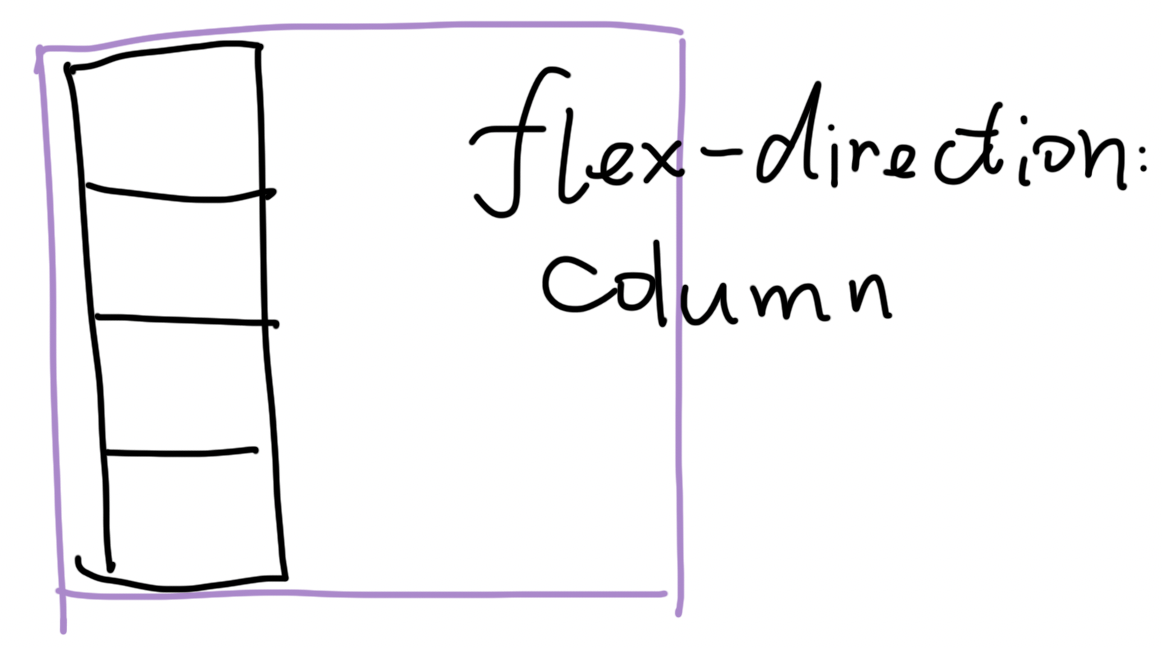 flex-direction:
column